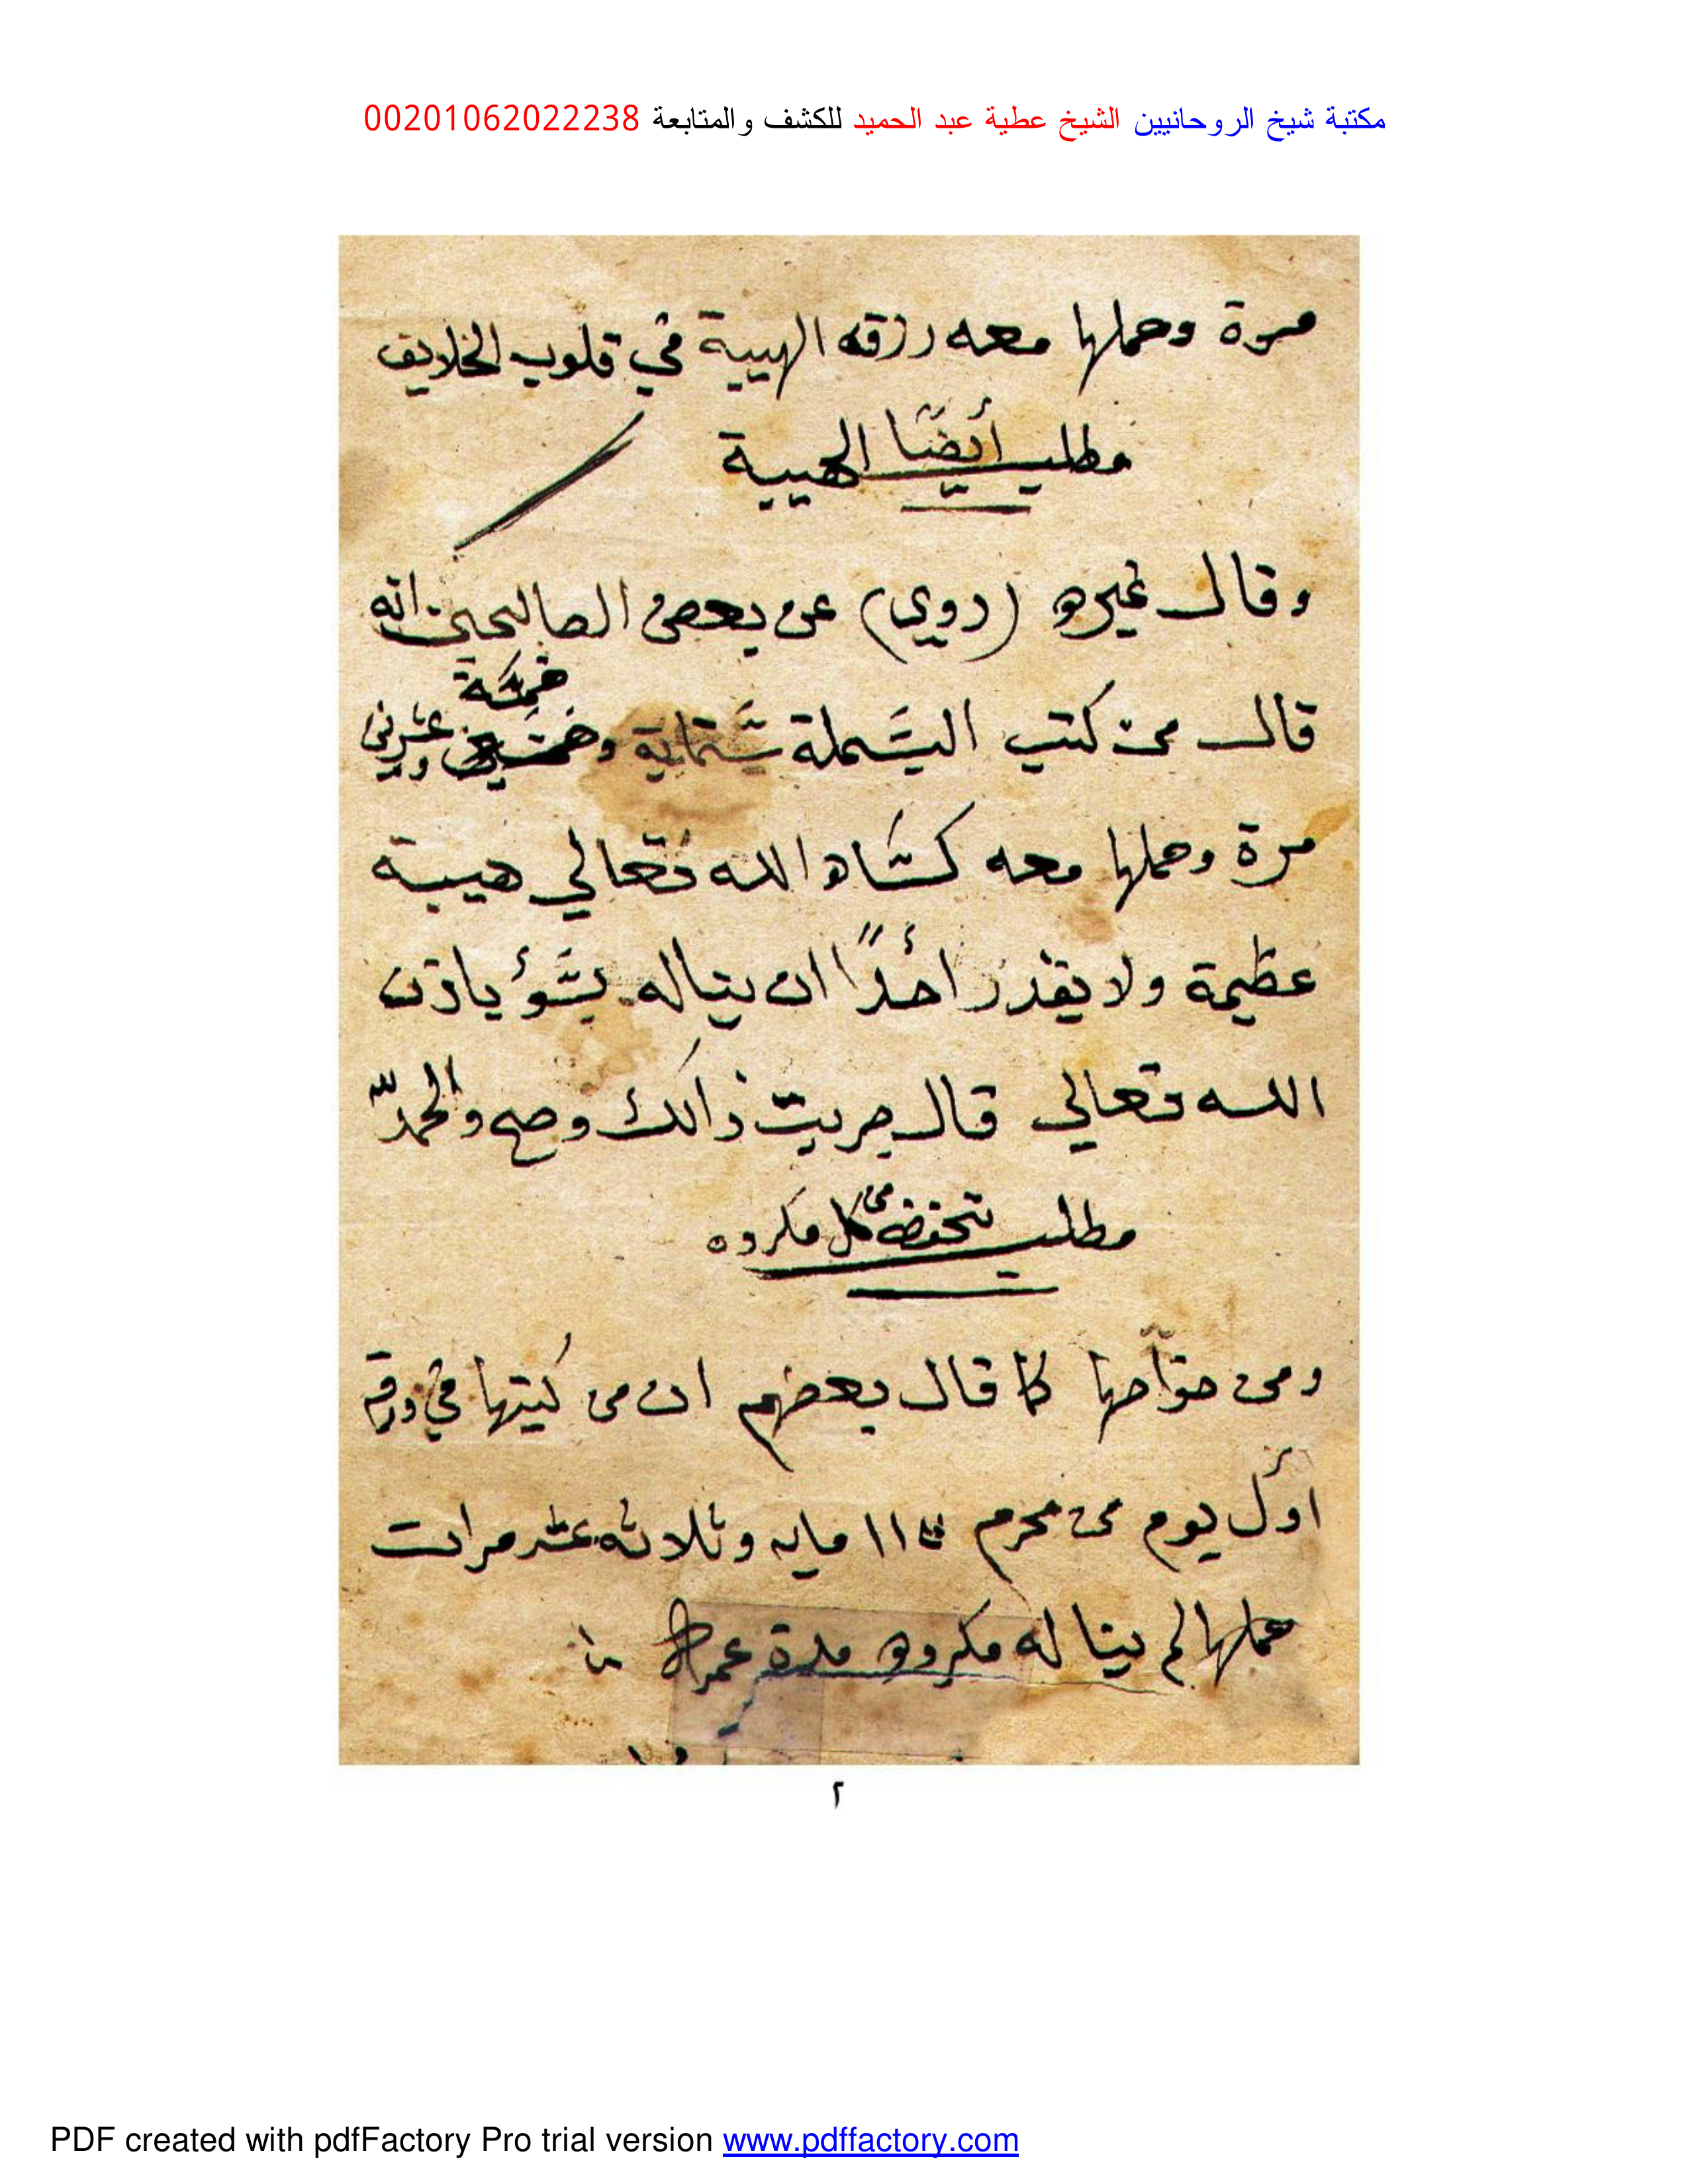 مكتبة شيخ الروحانيين الشيخ عطية عبد الحميد للكشف والمتابعة 00201062022238
مرة وحملها معه رزقه الهيبة في قلوب الخلايق
مطلب أيضًا الهيبة
وقال غيره (روي) عن بعض الصالحين انه
قال من كتب البسملة ستماية وخمسة وعشرين
مرة وحملها معه كساه الله تعالي هيبة
عظيمة ولا يقدر احدًا ان يناله بسؤ باذن
الله تعالي قال جربت ذالك وصح والحمد لله
مطلب تحفظه من كل مكروه
ومن خوآصها كما قال بعضهم ان من كتبها في ورقة
اول يوم من محرم ١١٣ مايه وثلاثه عشر مرات
حملها لم يناله مكروه مدة عمره
٢
PDF created with pdfFactory Pro trial version www.pdffactory.com